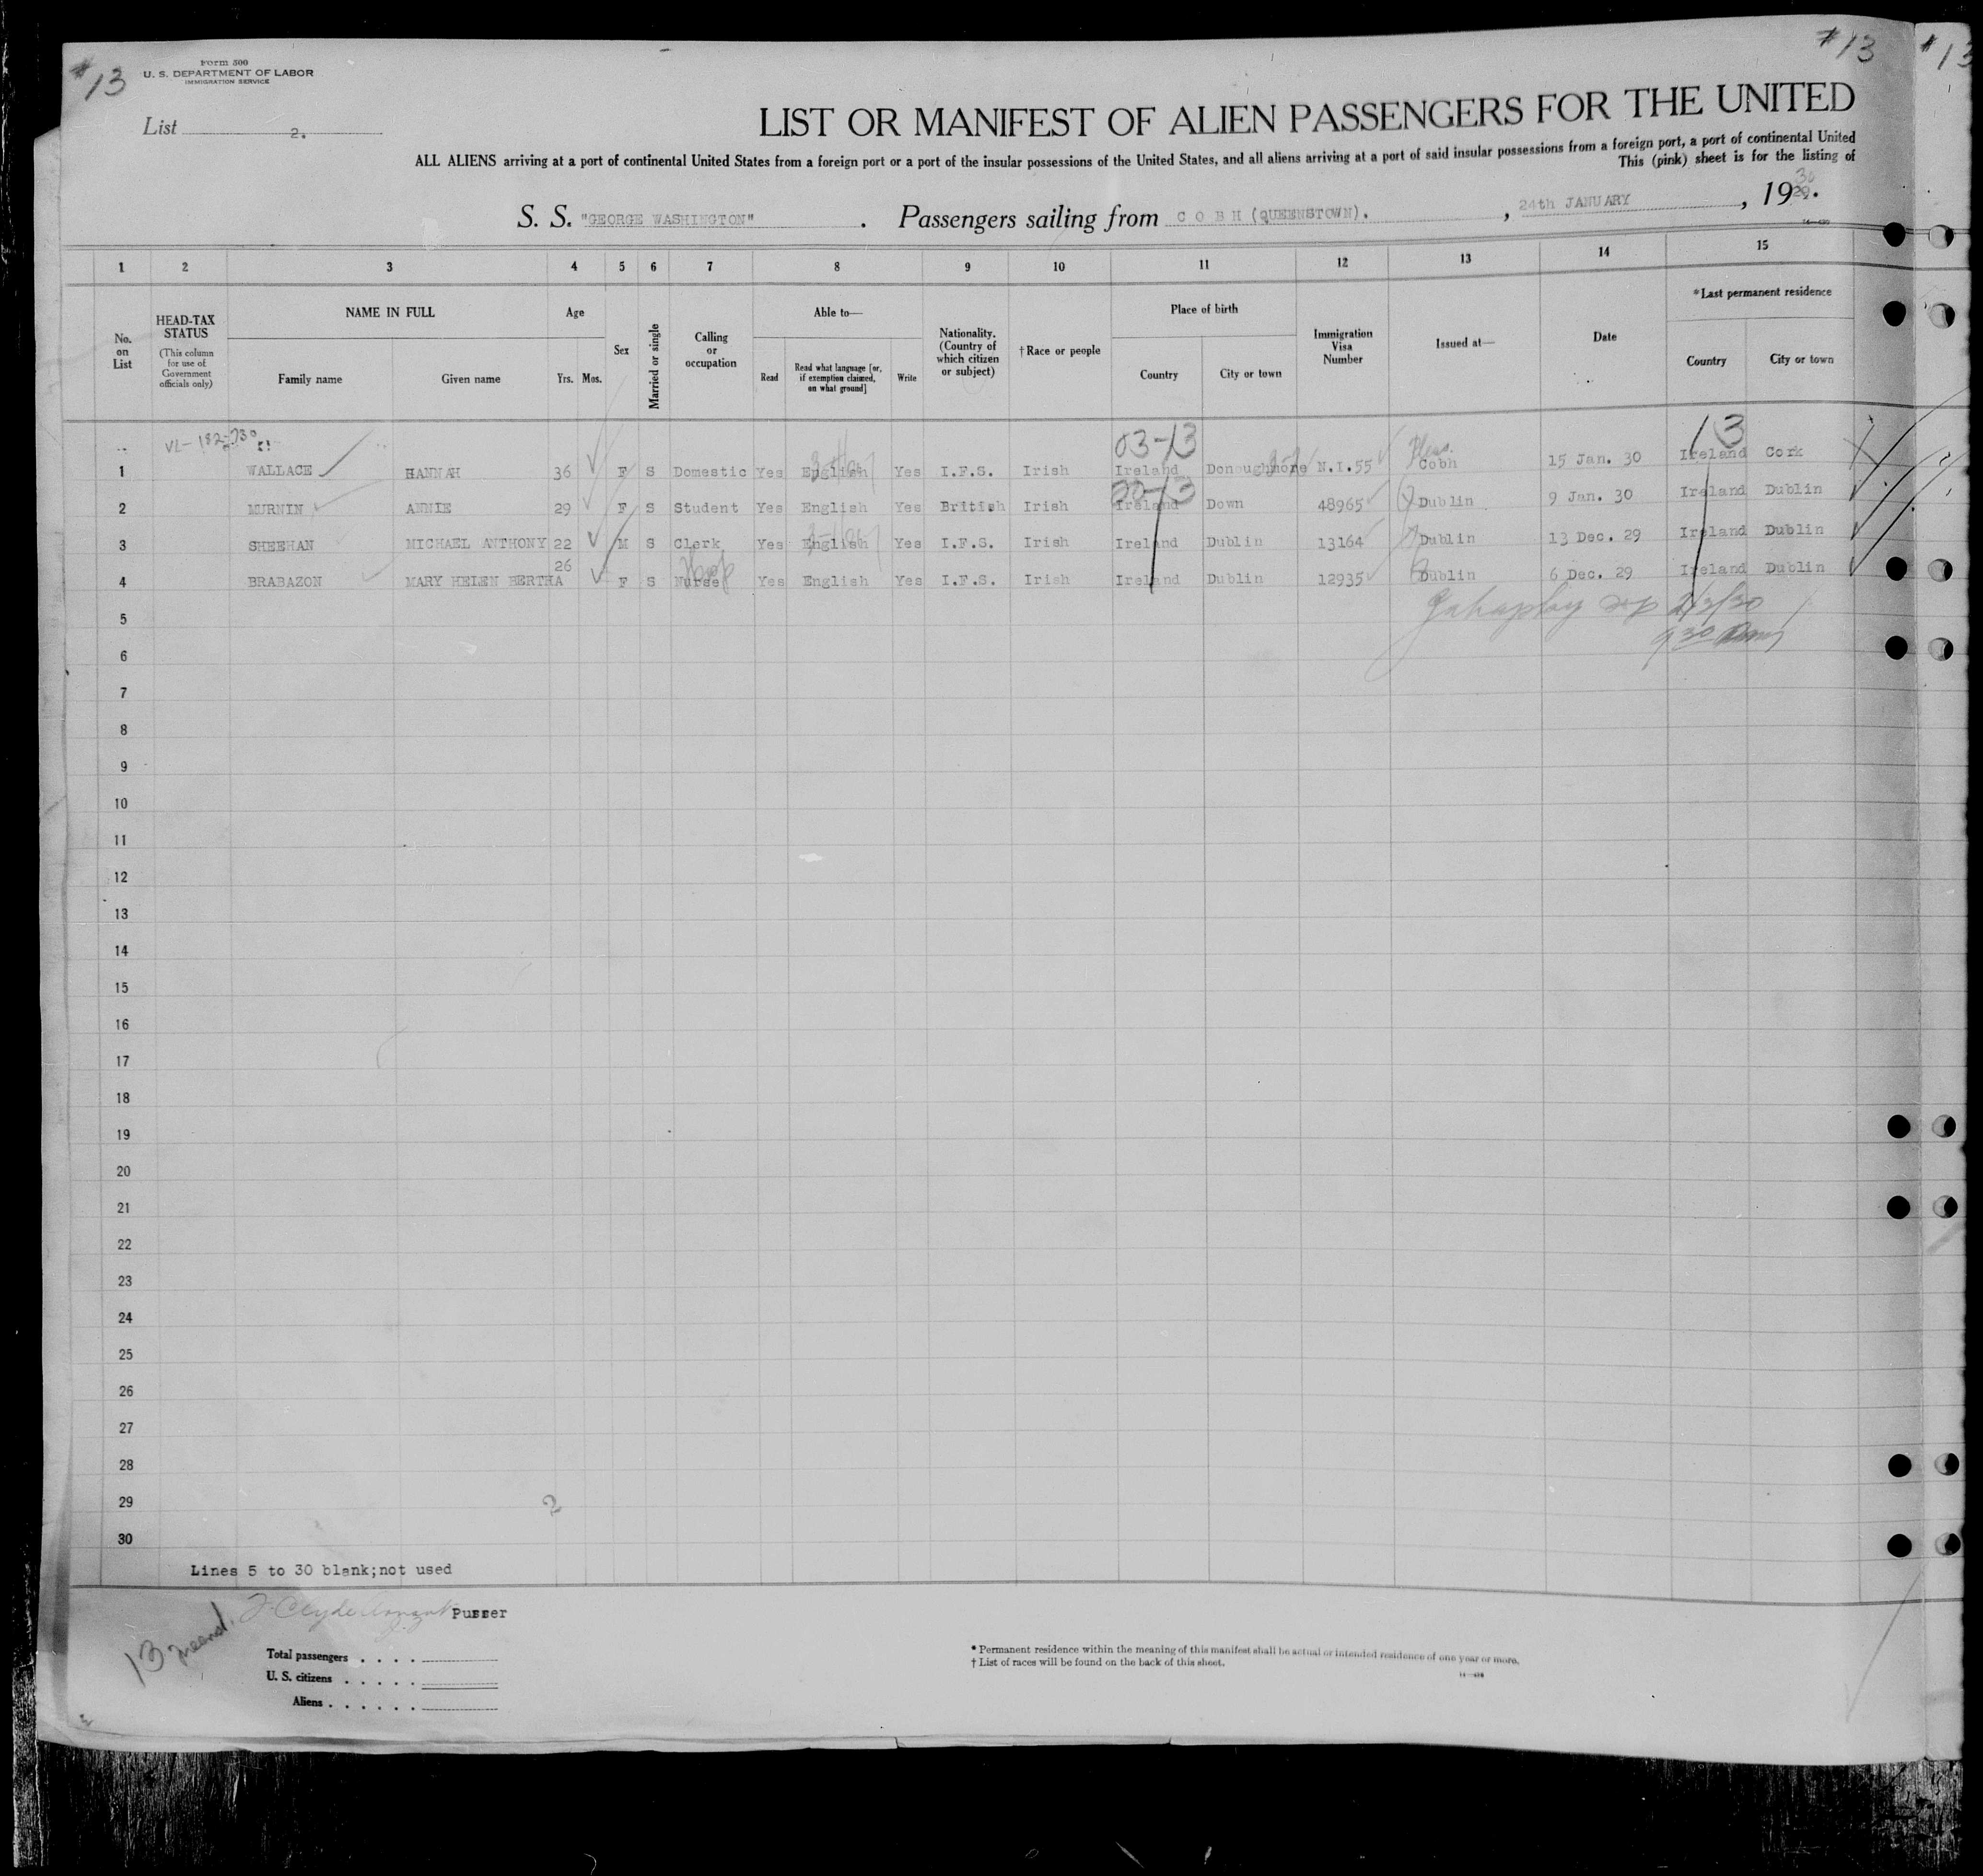 #13
#13
#13
Form 500
U. S. DEPARTMENT OF LABOR
IMMIGRATION SERVICE
List 2.
LIST OR MANIFEST OF ALIEN PASSENGERS FOR THE UNITED
ALL ALIENS arriving at a port of continental United States from a foreign port or a port of the insular possessions of the United States, and all aliens arriving at a port of said insular possessions from a foreign port, a port of continental United
This (pink) sheet is for the listing of
S. S. "GEORGE WASHINGTON". Passengers sailing from C O B H (QUEENSTOWN). , 24th JANUARY , 1930.
1 2 3 4 5 6 7 8 9 10 11 12 13 14 15
No. on List
HEAD-TAX STATUS
(This column for use of Government officials only)
NAME IN FULL
Family name Given name
Age
Yrs. Mos.
Sex
Married or single
Calling or occupation
Able to—
Read
Read what language [or, if exemption claimed, on what ground]
Write
Nationality. (Country of which citizen or subject)
†Race or people
Place of birth
Country City or town
Immigration Visa Number
Issued at—
Date
*Last permanent residence
Country City or town
VL-182-730
03-13
13
1 WALLACE HANNAH 36 F S Domestic Yes English Yes I.F.S. Irish Ireland Donoughmore N.I.55 Cobh 15 Jan. 30 Ireland Cork
20-13
2 MURNIN ANNIE 29 F S Student Yes English Yes British Irish Ireland Down 48965 Dublin 9 Jan. 30 Ireland Dublin
3 SHEEHAN MICHAEL ANTHONY 22 M S Clerk Yes English Yes I.F.S. Irish Ireland Dublin 13164 Dublin 13 Dec. 29 Ireland Dublin
4 BRABAZON MARY HELEN BERTHA 26 F S Nurse Yes English Yes I.F.S. Irish Ireland Dublin 12935 Dublin 6 Dec. 29 Ireland Dublin
5
2/3/30
6
930
7
8
9
10
11
12
13
14
15
16
17
18
19
20
21
22
23
24
25
26
27
28
29
2
30
Lines 5 to 30 blank;not used
Purser
13
Total passengers . . . .
U. S. citizens . . . . .
Aliens . . . . . .
* Permanent residence within the meaning of this manifest shall be actual or intended residence of one year or more.
† List of races will be found on the back of this sheet.